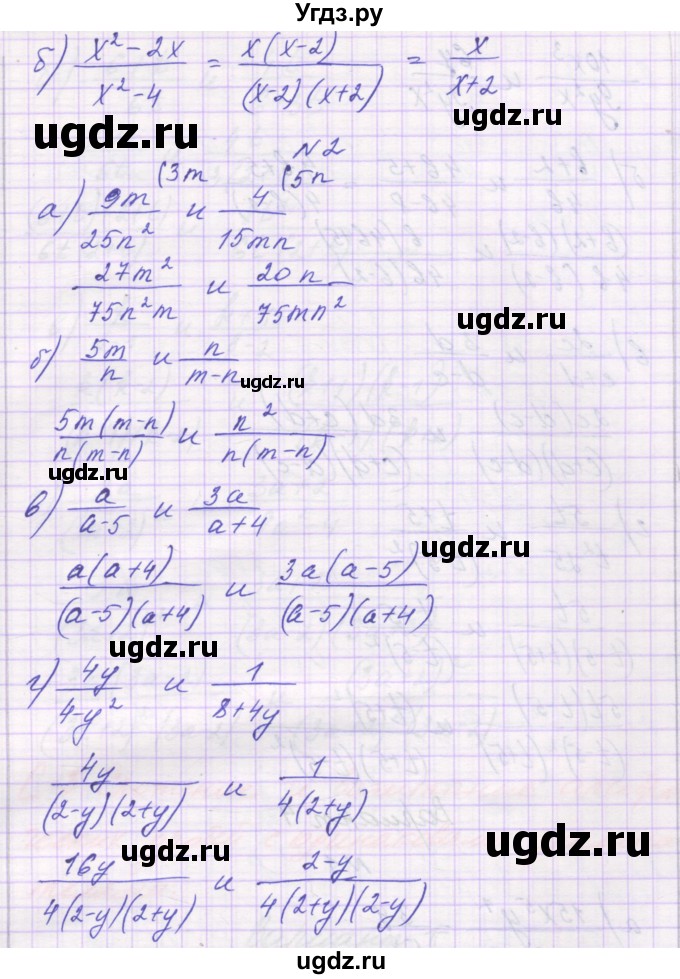 Угдз.ру
б) (x² - 2x)/(x² - 4) = x(x-2)/((x-2)(x+2)) = x/(x+2)
ugdz.ru ugdz.ru
N2
(3m (5n
а) 9m/(25n²) и 4/(15mn)
ugdz.ru
27m²/(75n²m) и 20n/(75mn²)
ugdz.ru
б) 5m/n и n/(m-n)
ugdz.ru
5m(m-n)/(n(m-n)) и n²/(n(m-n))
ugdz.ru
в) a/(a-5) и 3a/(a+4)
ugdz.ru
a(a+4)/((a-5)(a+4)) и 3a(a-5)/((a-5)(a+4))
ugdz.ru
г) 4y/(4-y²) и 1/(8+4y)
ugdz.ru
4y/((2-y)(2+y)) и 1/(4(2+y))
ugdz.ru ugdz.ru
16y/(4(2-y)(2+y)) и (2-y)/(4(2+y)(2-y))
ugdz.ru
ugdz.ru